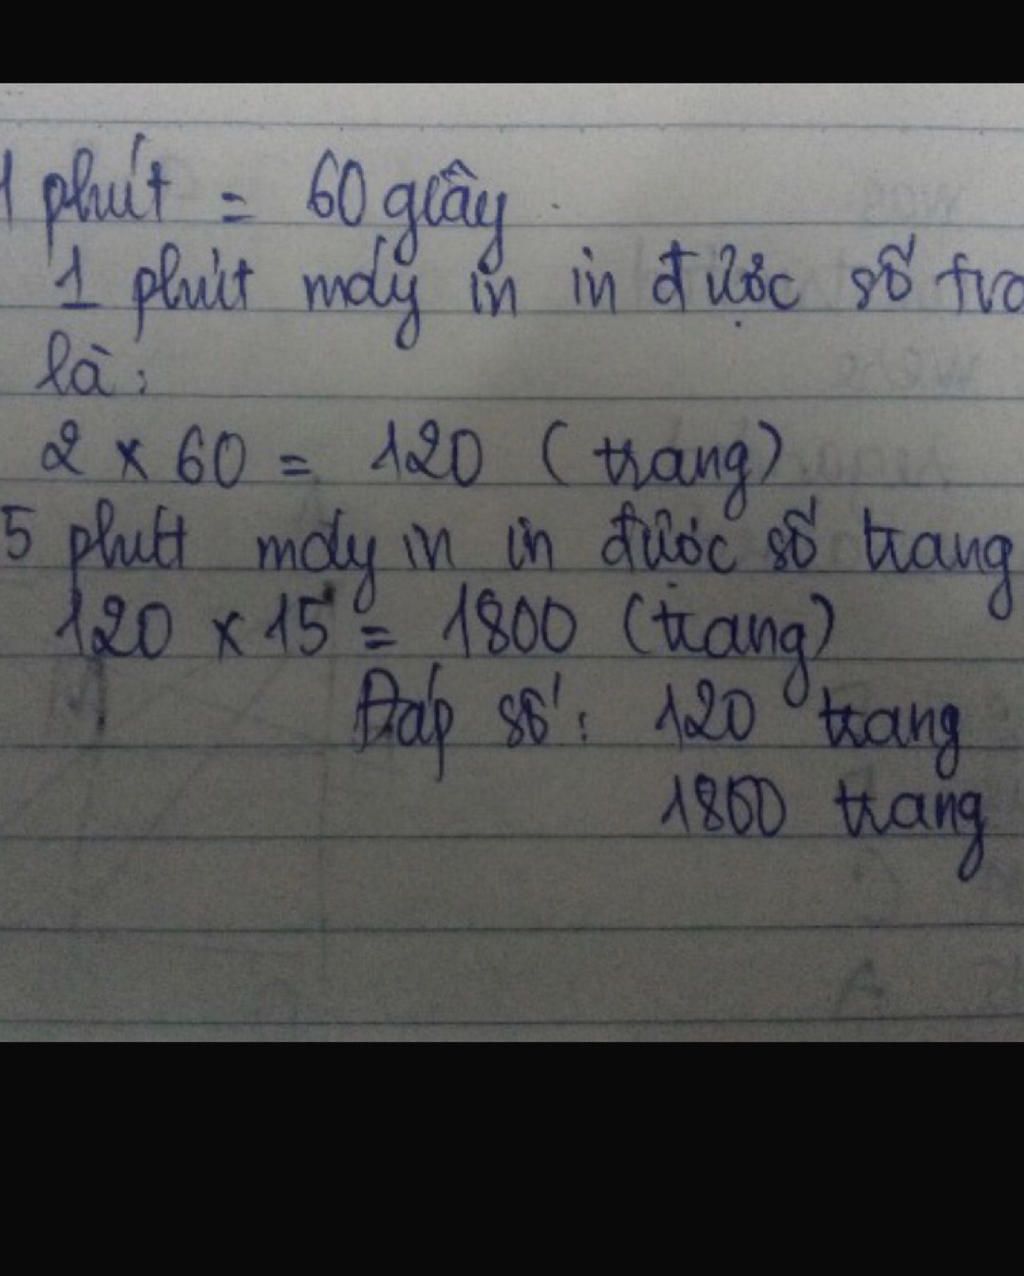 1 phút = 60 giây
1 phút máy in in được số tra
là:
2 x 60 = 120 (trang)
5 phút máy in in được số trang
120 x 15 = 1800 (trang)
Đáp số: 120 trang
1800 trang